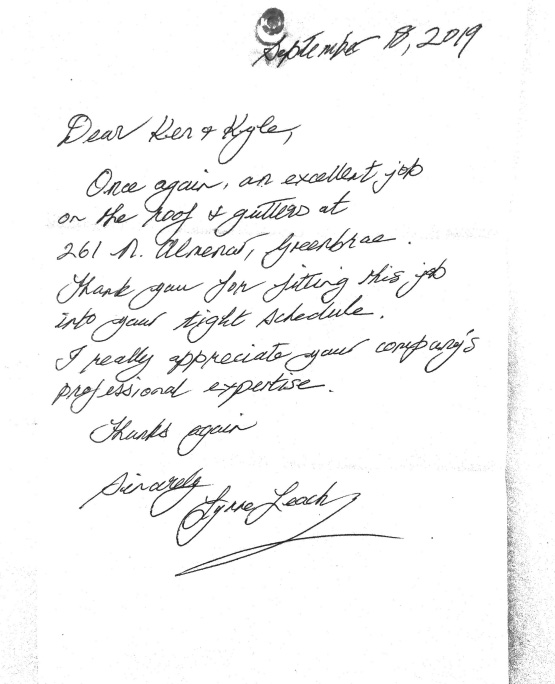 September 18, 2019
Dear Ken & Kyle,
Once again, an excellent job
on the roof & gutters at
261 N. Almenar, Greenbrae.
Thank you for fitting this job
into your tight schedule.
I really appreciate your company's
professional expertise.
Thanks again
Sincerely
Lynne Leach